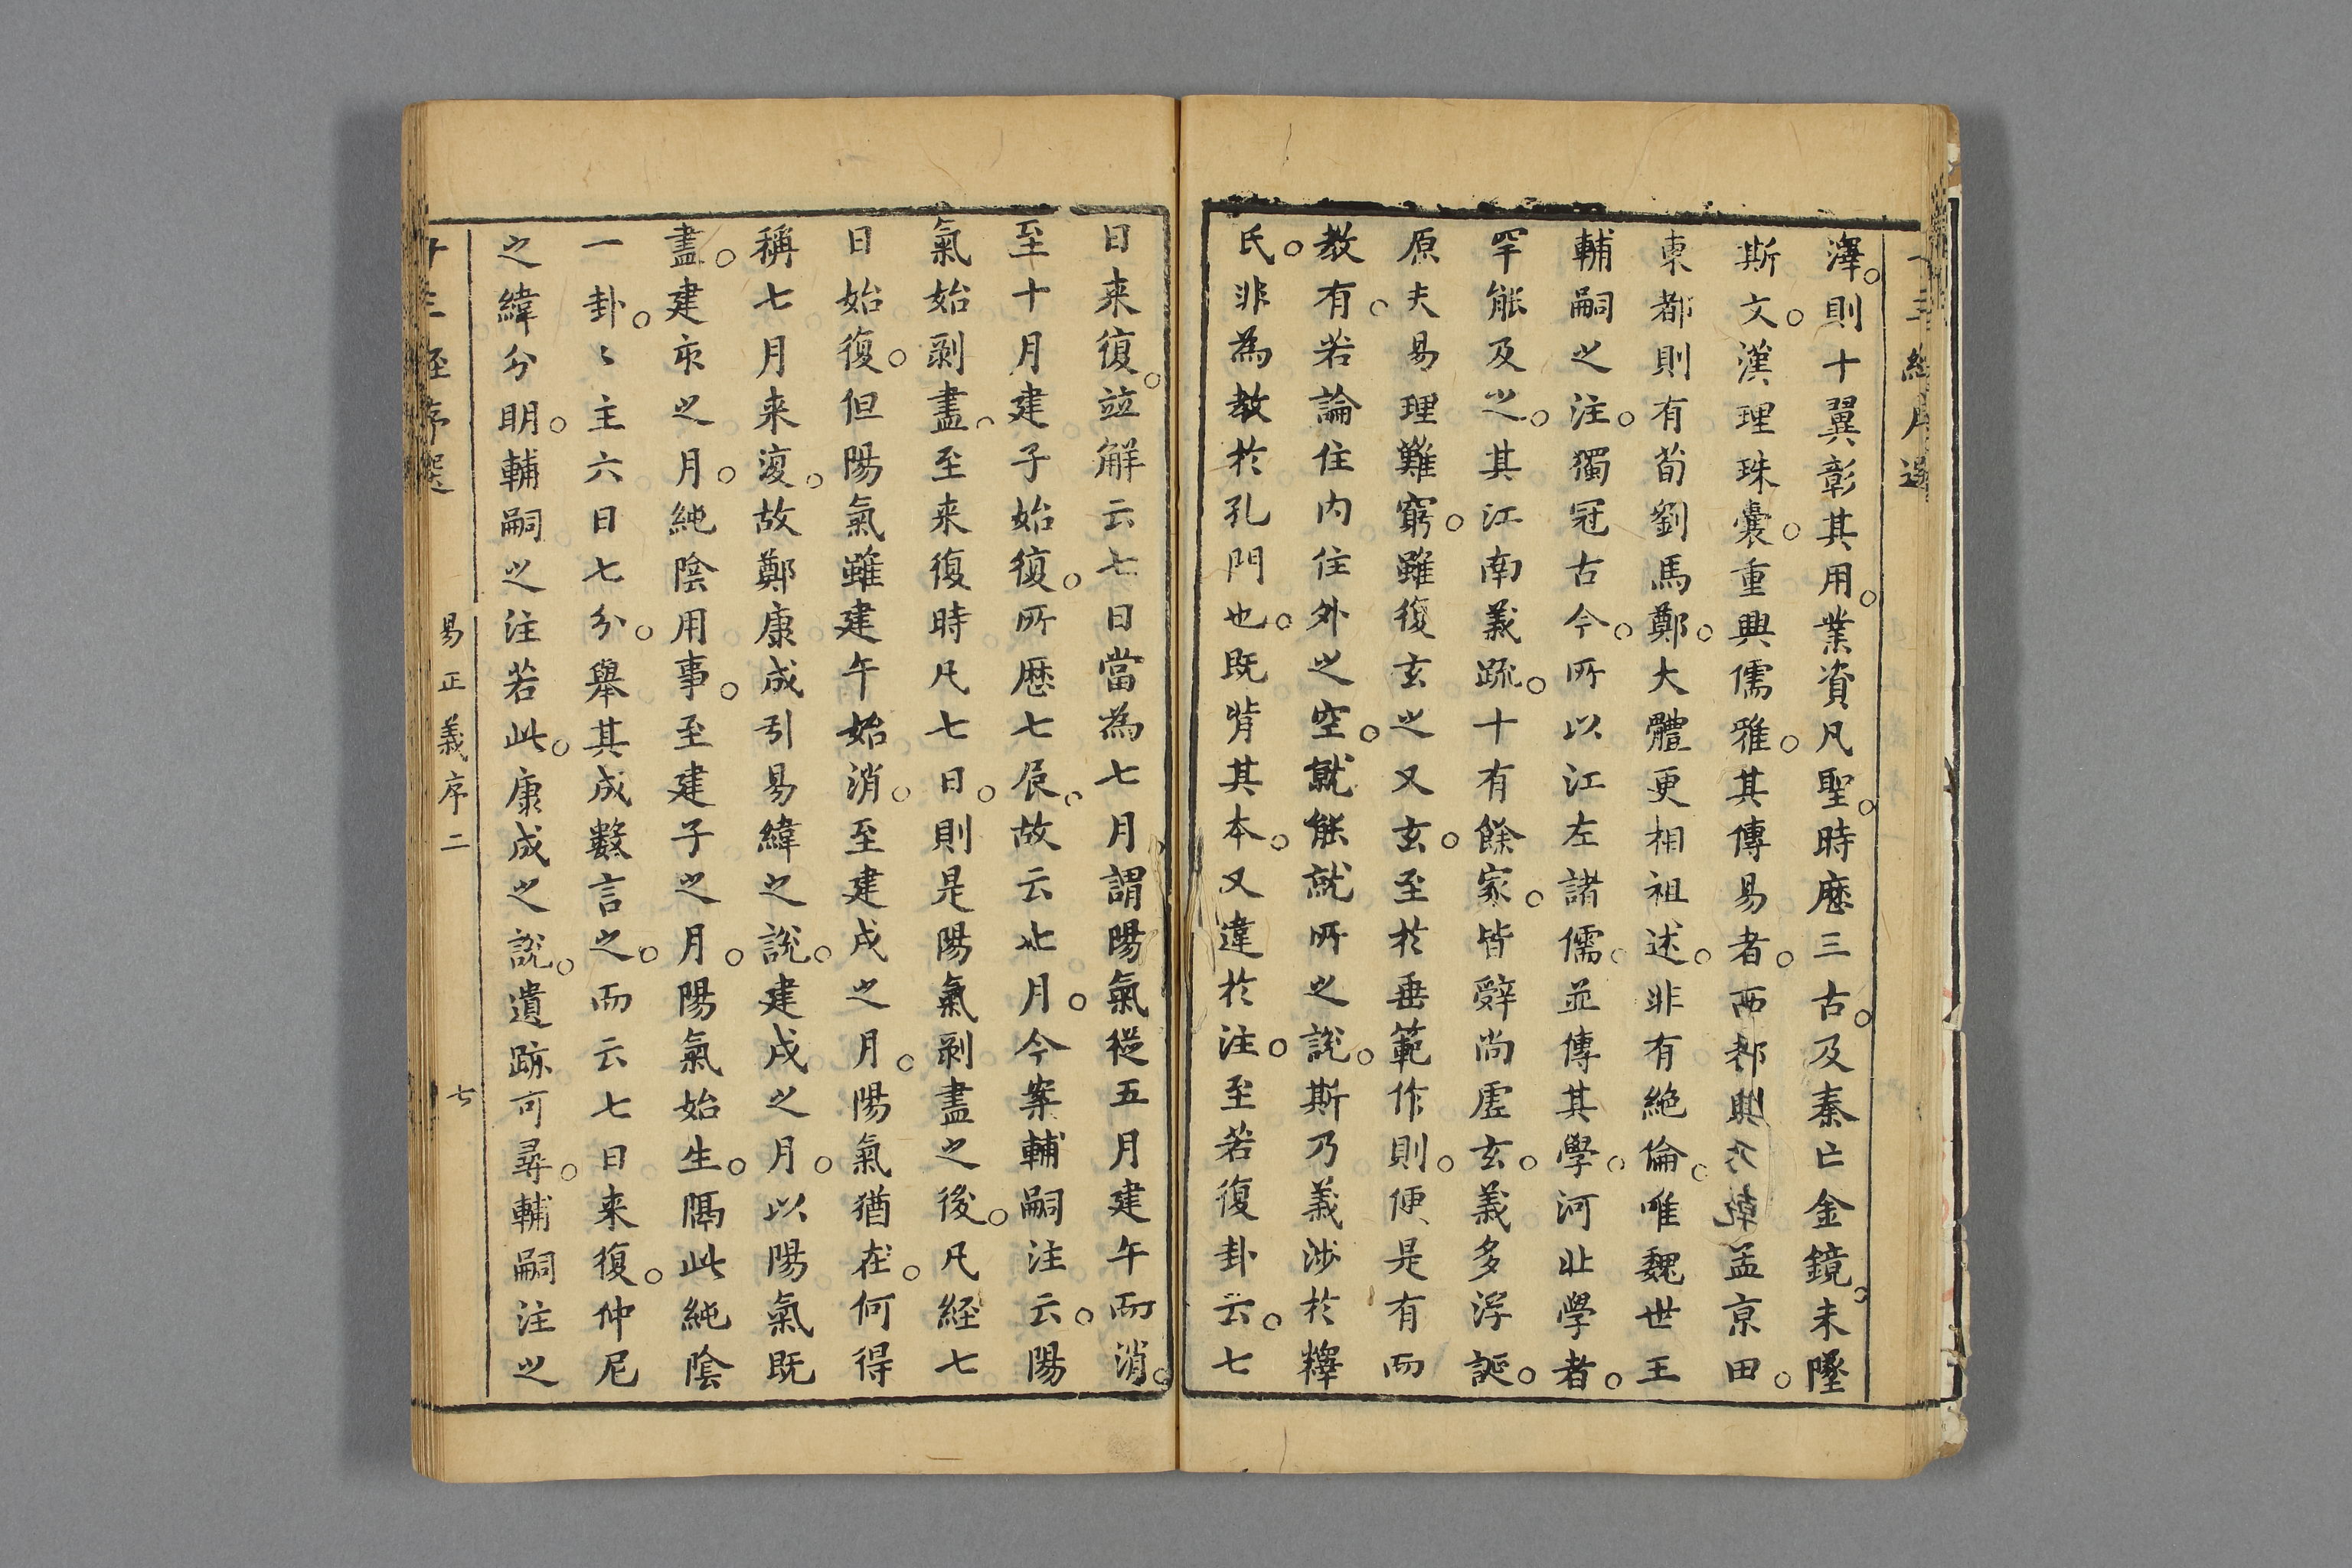 十三經序選
澤則十翼彰其用業資凡聖時歷三古及秦亡金鏡未墜
斯文漢理珠囊重興儒雅其傳易者西都則有丁孟京田
東都則有荀劉馬鄭大體更相祖述非有絶倫唯魏世王
輔嗣之注獨冠古今所以江左諸儒並傳其學河北學者
罕能及之其江南義疏十有餘家皆辭尚虛玄義多浮誕
原夫易理難窮雖復玄之又玄至於垂範作則便是有而
教有若論住内住外之空就能就所之說斯乃義涉於釋
氏非為教於孔門也既背其本又違於注至若復卦云七
日来復並解云七日當為七月謂陽氣從五月建午而消
至十月建子始復所歷七辰故云七月今案輔嗣注云陽
氣始剥盡至来復時凡七日則是陽氣剥盡之後凡經七
日始復但陽氣雖建午始消至建戌之月陽氣猶在何得
稱七月来復故鄭康成引易緯之說建戌之月以陽氣既
盡建亥之月純陰用事至建子之月陽氣始生隔此純陰
一卦〻主六日七分舉其成數言之而云七日来復仲尼
之緯分明輔嗣之注若此康成之說遺跡可尋輔嗣注之
十三經序選 易正義序二 七